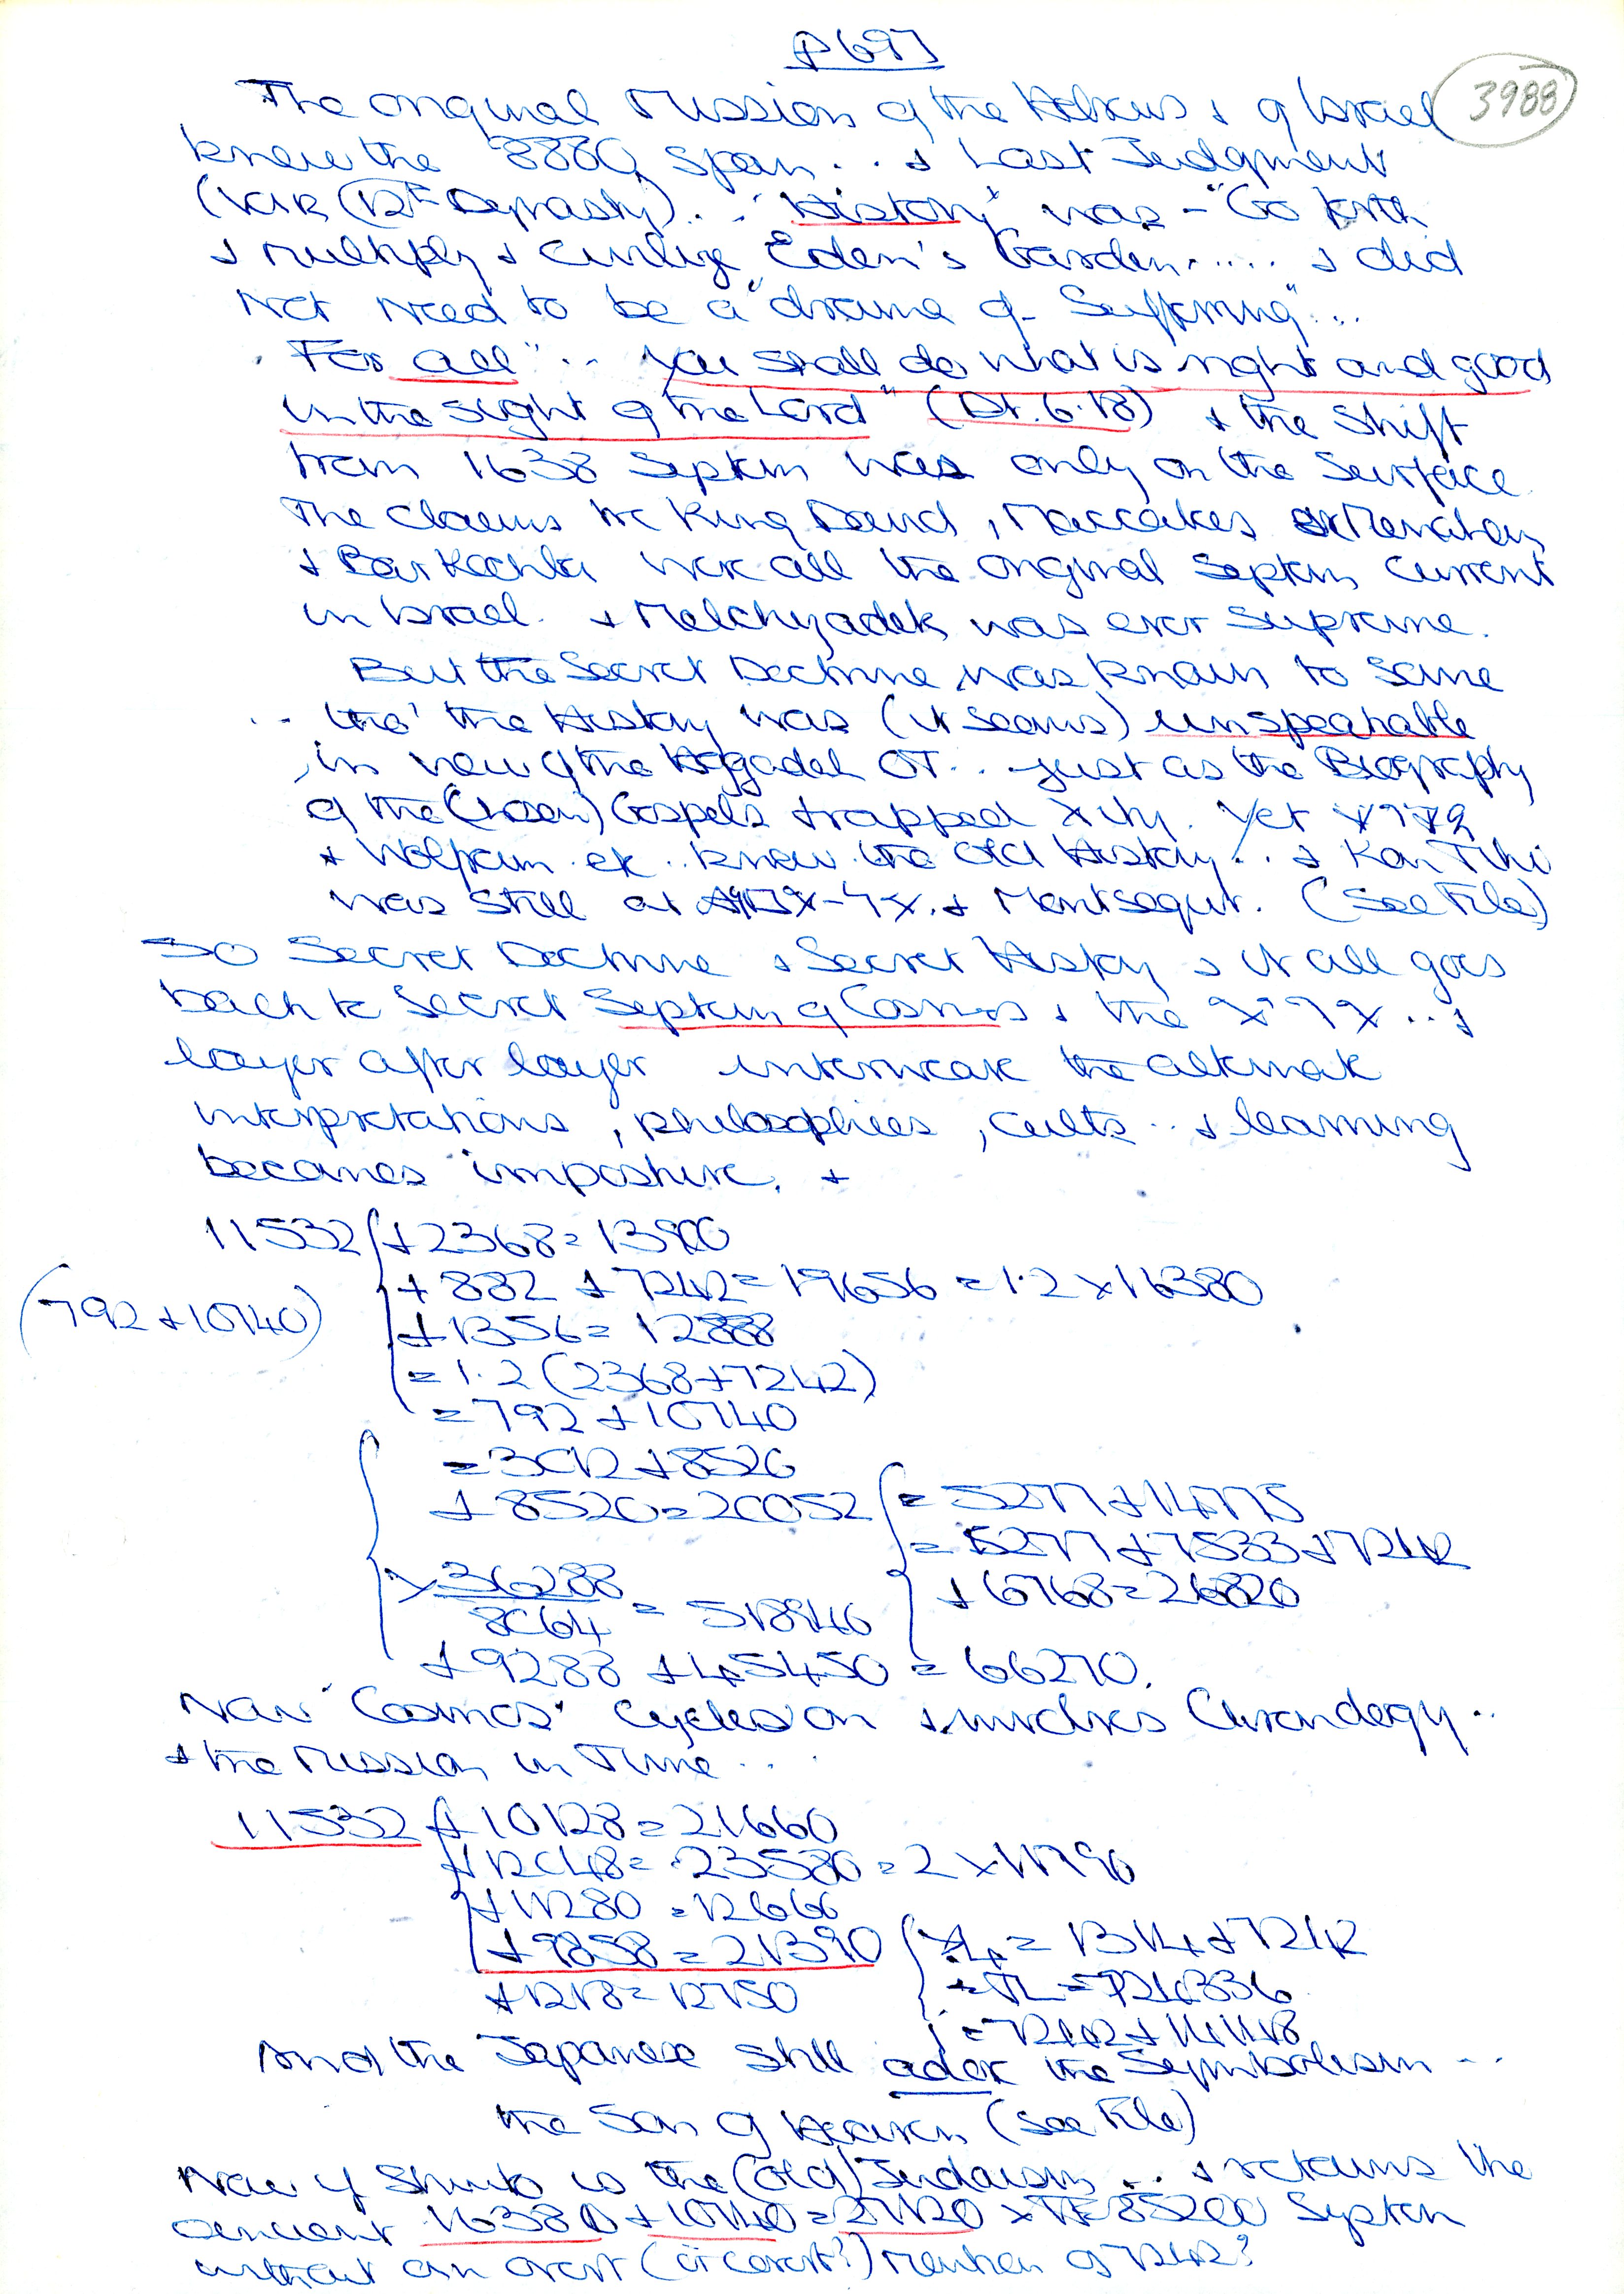 P697
3988
The original Mission of the Hebrews & of Israel
knew the 8880 span... & Last Judgment
(12th Dynasty)... "History" was - "Go forth
& multiply & civilize Eden's Garden..... & did
not need to be a "drama of Suffering"...
For all "... you shall do what is right and good
in the sight of the Lord" (Dt. 6.18) & the shift
from 1638 System was only on the Surface.
The claims for King David, Maccabees or Menahem
& Bar Kochba were all the original System current
in Israel. & Melchizadek was ever supreme.
But the Secret Doctrine was known to some
.. tho' the History was (it seems) unspeakable
in view of the Haggadah OT... just as the Biography
of the (chosen) Gospels trapped Xity. Yet
& Wolfram etc.. knew the Old History... & Kon Tiki
was still at & Montsegur. (See File)
So Secret Doctrine & Secret History & it all goes
back to Secret System of Cosmos & the .. &
layer after layer interweave the alternate
interpretations, philosophies, cults .. & learning
becomes imposture. &
11532 { + 2368 = 13900
+ 882 + 7242 = 19656 = 1.2 x 16380
(792 + 10740)
+ 1356 = 12888
= 1.2 (2368 + 7242)
= 792 + 10740
= 3012 + 8520
+ 8520 = 20052 { = 5277 + 14775
= 5277 + 7533 + 7242
x 36288 / 8064 = 518940
+ 6768 = 26820
+ 9288 + 45450 = 66270.
Now 'Cosmos' cycles on & involves Chronology..
& the Mission in Time...
11532 { + 10128 = 21660
+ 12048 = 23580 = 2 x 11790
+ 11280 = 12666
+ 9858 = 21390 { = 1314 + 7242
+ 1218 = 12750
= 7242 + 14148
And the Japanese still adore the Symbolism...
the Son of Heaven (see File)
Now if Shinto is the (old) Judaism... & retains the
ancient 16380 + 10740 = 27120 x π = 85200 System
without an overt (or covert?) mention of 7242?